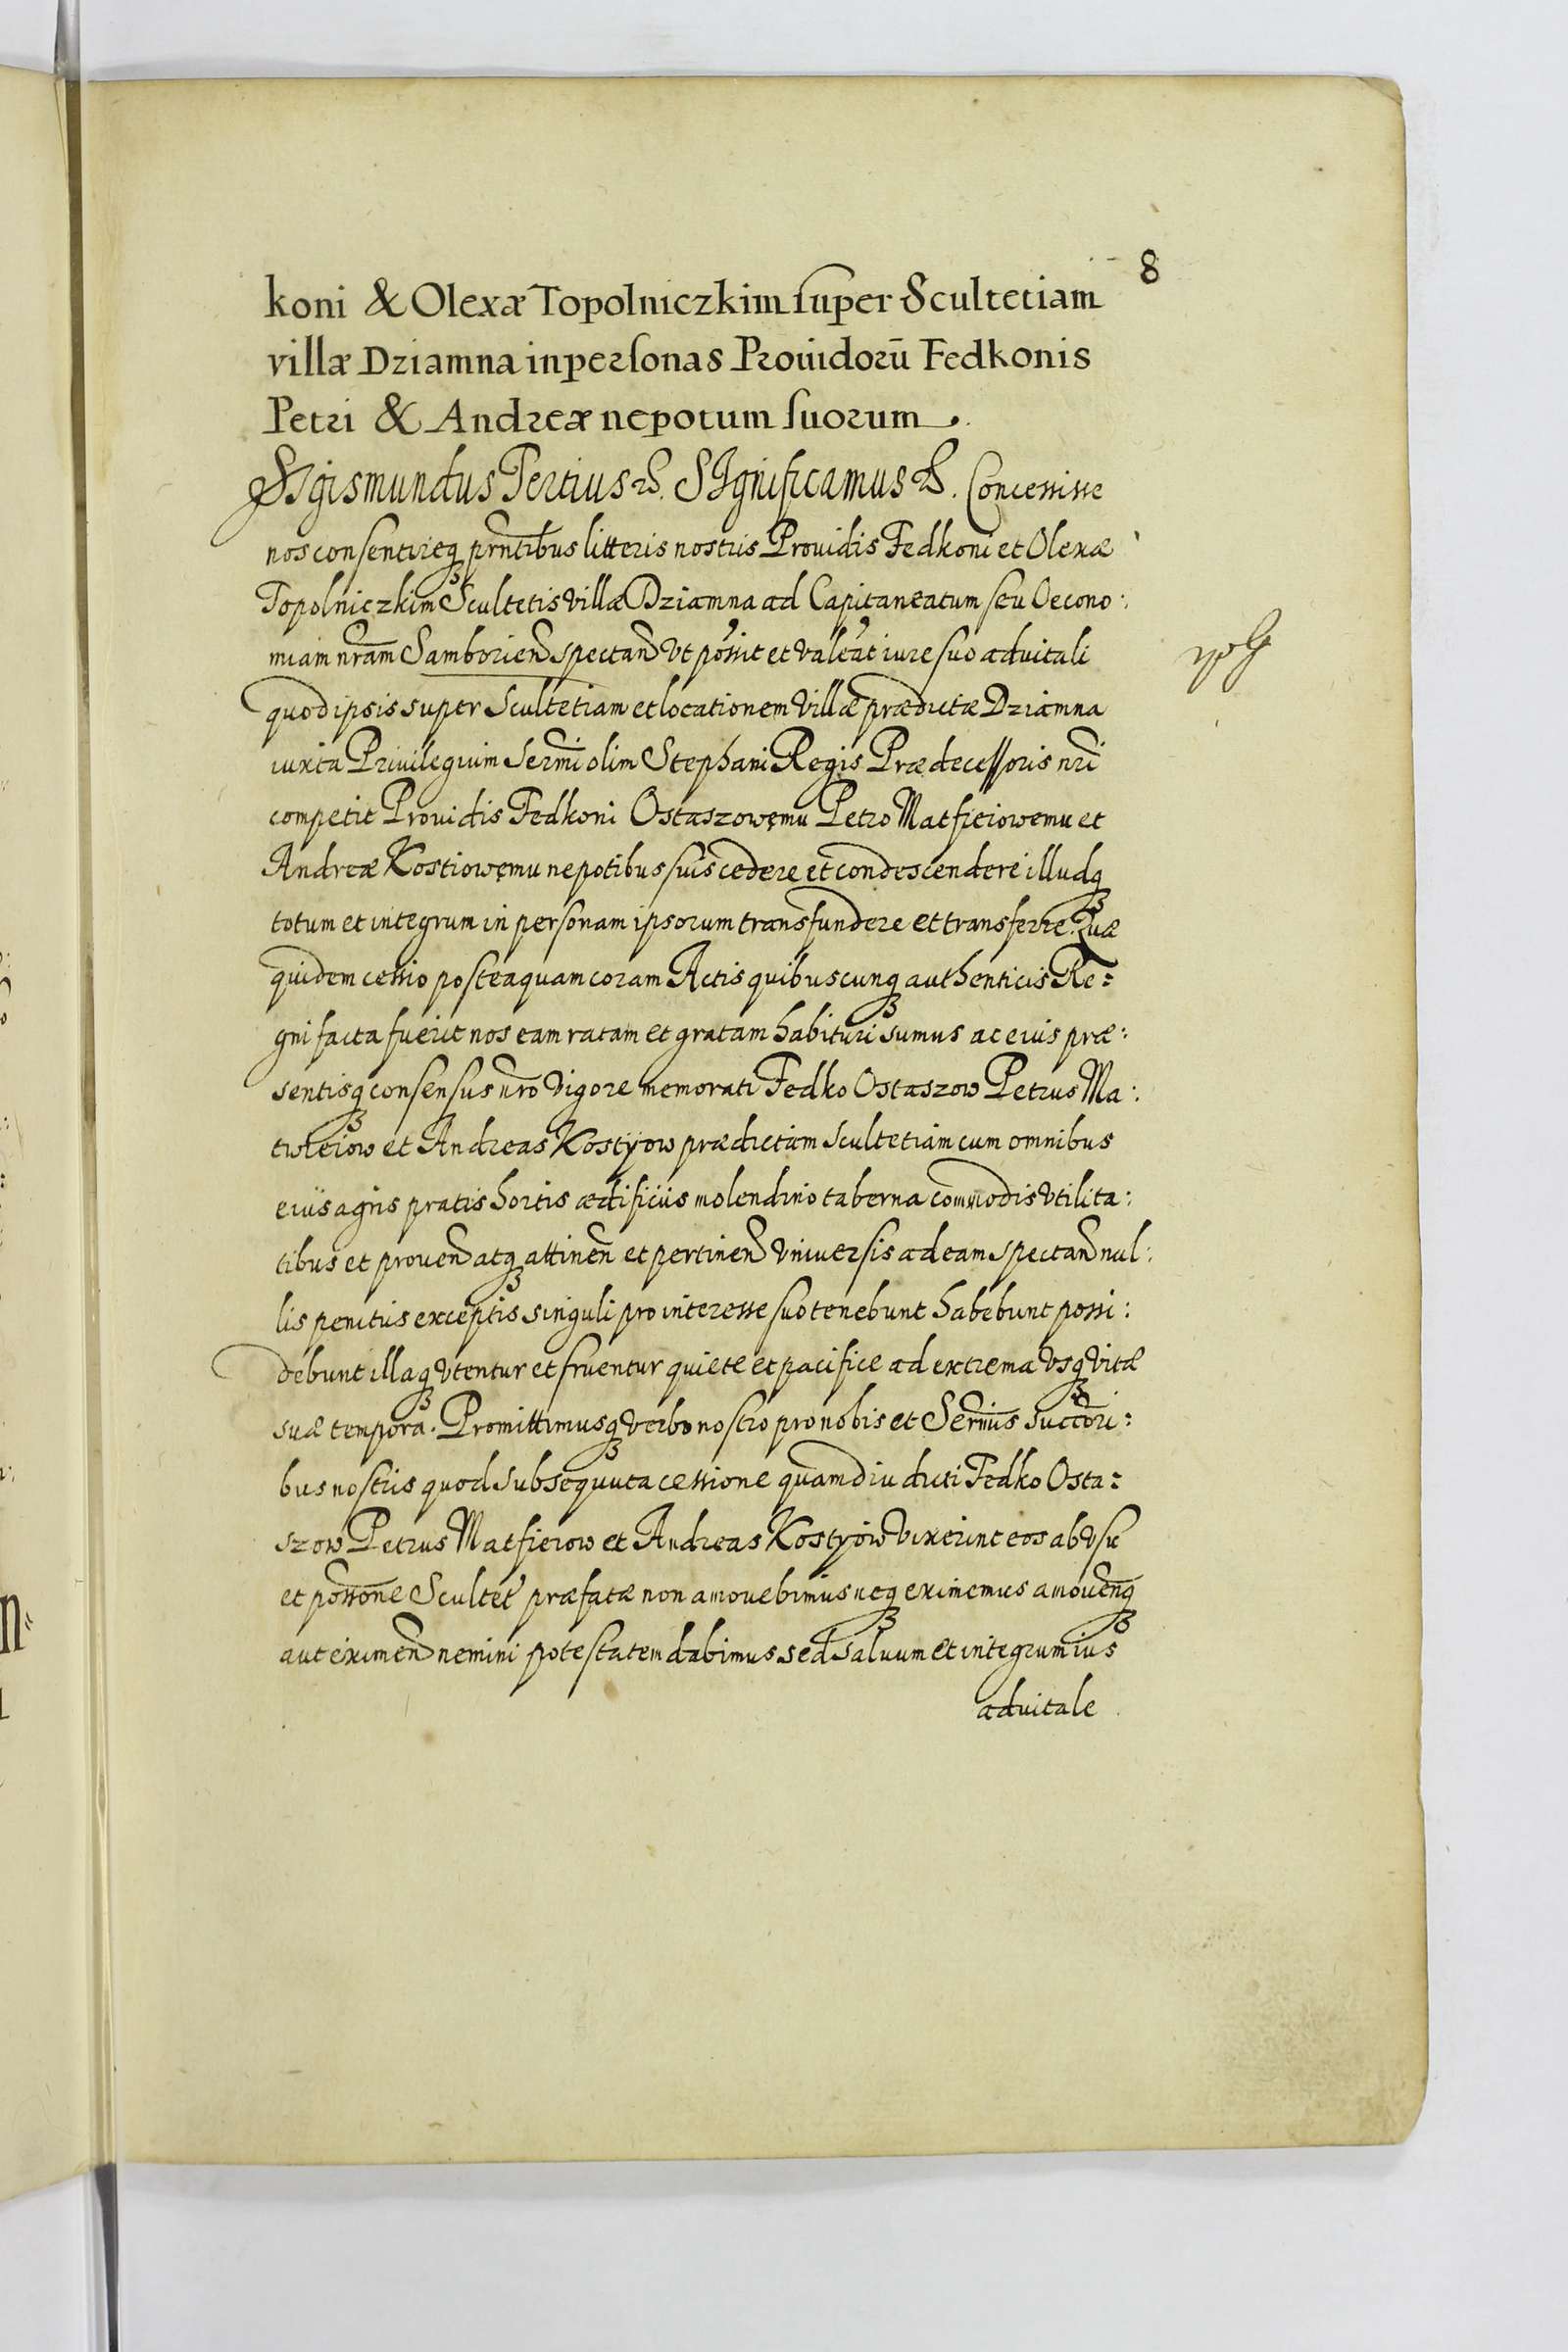 8
koni & Olexæ Topolniczkim super Scultetiam
villæ Dziamna in personas Prouidorū Fedkonis
Petri & Andreæ nepotum suorum.
SIgismundus Tertius &. SIgnificamus &. Concessisse
nos consentireq prntibus litteris nostris Prouidis Fedkoni et Olexæ
Topolniczkim Scultetis Villæ Dziamna ad Capitaneatum seu Oecono:
miam nram Samborien spectan Vt possit et valeat iure suo aduitali
quod ipsis super Scultetiam et locationem Villæ prædictæ Dziamna
iuxta Priuilegium Sermi olim Stephani Regis Prædecessoris nri
competit Prouidis Fedkoni Ostaszowęmu Petro Matfieiowemu et
Andreæ Kostiowęmu nepotibus suis cedere et condescendere illudq
totum et integrum in personam ipsorum transfundere et transferre. Quæ
quidem cessio posteaquam coram Actis quibuscunq authenticis Re:
gni facta fuerit nos eam ratam et gratam habituri sumus ac eius præ:
sentisq consensus nro Vigore memorati Fedko Ostaszow Petrus Ma:
twieiow et Andreas Kostÿow prædictam Scultetiam cum omnibus
eius agris pratis hortis ædificiis molendino taberna commodis Vtilita:
tibus et prouen atq attinen et pertinen Vniuersis ad eam spectan nul:
lis penitus exceptis singuli pro interesse suo tenebunt habebunt possi:
debunt illaq Vtentur et fruentur quiete et pacifice ad extrema Vsq Vitæ
suæ tempora. Promittimusq Verbo nostro pro nobis et Sermis succori:
bus nostris quod subsequuta cessione quamdiu dicti Fedko Osta:
szow Petrus Matfieiow et Andreas Kostyow Vixerint eos ab Vsu
et possone Scultet præfatæ non amouebimus neq eximemus amouenq
aut eximen nemini potestatem dabimus sed Saluum et integrum ius
aduitale